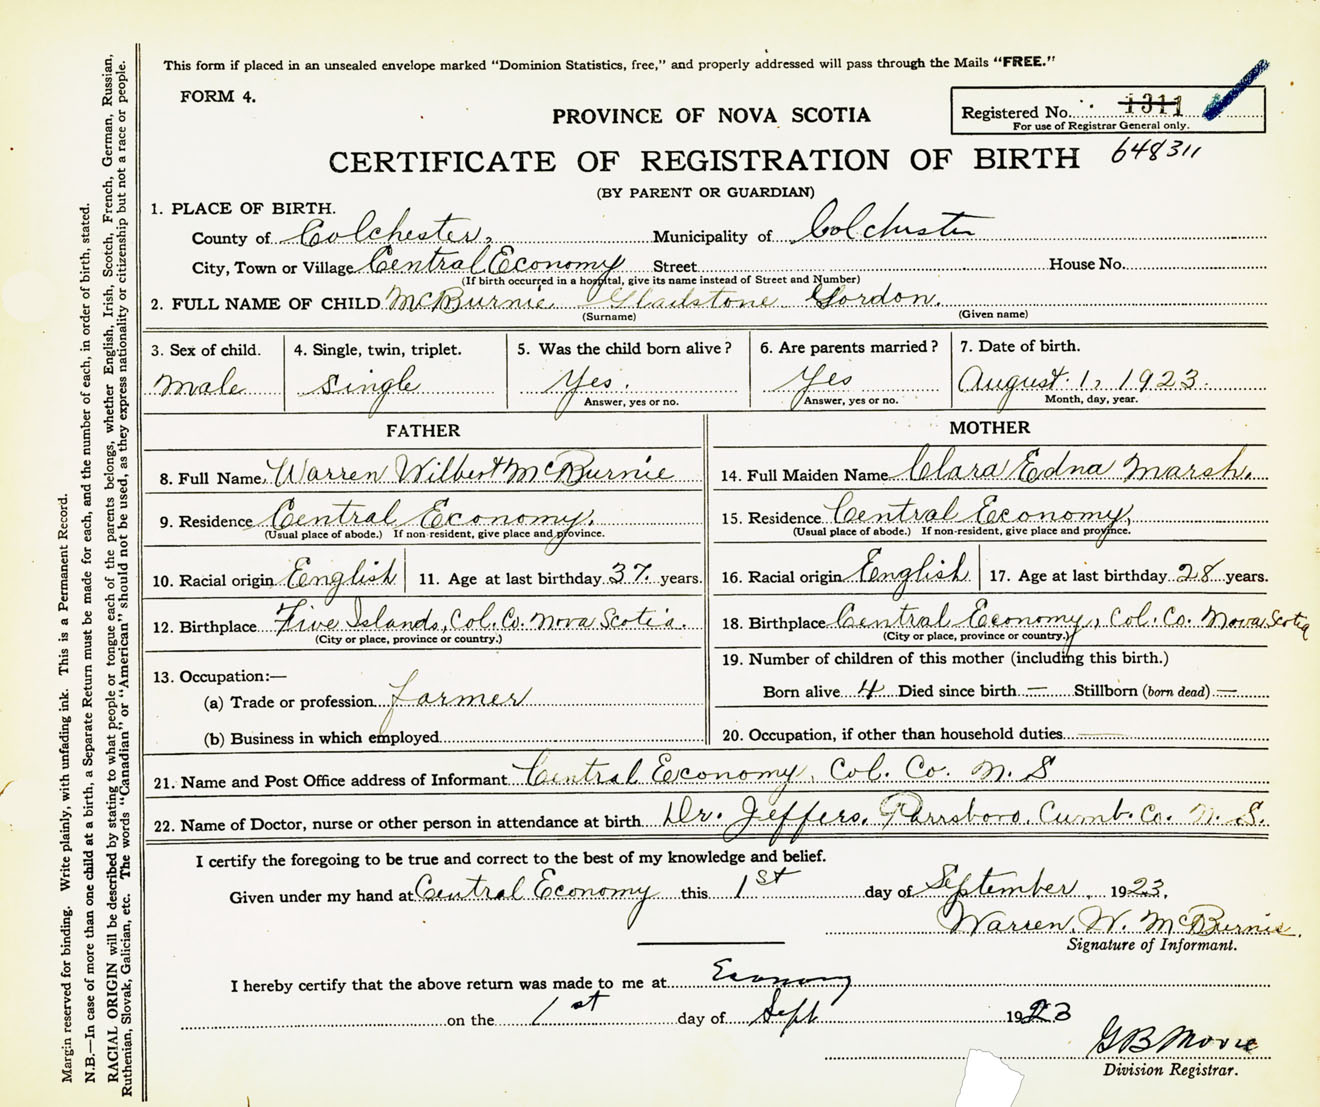 This form if placed in an unsealed envelope marked "Dominion Statistics, free," and properly addressed will pass through the Mails "FREE."
FORM 4.
PROVINCE OF NOVA SCOTIA
Registered No. 1311
For use of Registrar General only.
CERTIFICATE OF REGISTRATION OF BIRTH 648311
(BY PARENT OR GUARDIAN)
1. PLACE OF BIRTH.
County of Colchester, Municipality of Colchester
City, Town or Village Central Economy Street House No.
(If birth occurred in a hospital, give its name instead of Street and Number)
2. FULL NAME OF CHILD McBurnie Gladstone Gordon.
(Surname) (Given name)
3. Sex of child. 4. Single, twin, triplet. 5. Was the child born alive? 6. Are parents married? 7. Date of birth.
Male Single Yes. Yes August 1, 1923.
Answer, yes or no. Answer, yes or no. Month, day, year.
FATHER
8. Full Name Warren Wilbert McBurnie
9. Residence Central Economy.
(Usual place of abode.) If non-resident, give place and province.
10. Racial origin English 11. Age at last birthday 37. years.
12. Birthplace Five Islands, Col. Co. Nova Scotia.
(City or place, province or country.)
13. Occupation:—
(a) Trade or profession farmer
(b) Business in which employed
MOTHER
14. Full Maiden Name Clara Edna Marsh.
15. Residence Central Economy,
(Usual place of abode.) If non-resident, give place and province.
16. Racial origin English 17. Age at last birthday 28 years.
18. Birthplace Central Economy, Col. Co. Nova Scotia
(City or place, province or country.)
19. Number of children of this mother (including this birth.)
Born alive 4 Died since birth — Stillborn (born dead) —
20. Occupation, if other than household duties —
21. Name and Post Office address of Informant Central Economy, Col. Co. N. S
22. Name of Doctor, nurse or other person in attendance at birth Dr. Jeffers, Parrsboro, Cumb. Co. N. S.
I certify the foregoing to be true and correct to the best of my knowledge and belief.
Given under my hand at Central Economy this 1st day of September, 1923,
Warren. W. McBurnie.
Signature of Informant.
I hereby certify that the above return was made to me at Economy
on the 1st day of Sept 1923
G B Moore
Division Registrar.
Margin reserved for binding. Write plainly, with unfading ink. This is a Permanent Record.
N.B.—In case of more than one child at a birth, a Separate Return must be made for each, and the number of each, in order of birth, stated.
RACIAL ORIGIN will be described by stating to what people or tongue each of the parents belongs, whether English, Irish, Scotch, French, German, Russian,
Ruthenian, Slovak, Galician, etc. The words "Canadian" or "American" should not be used, as they express nationality or citizenship but not a race or people.